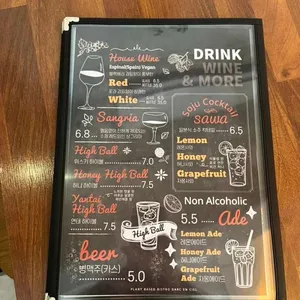 House Wine
Espinal(Spain) Vegan
Red
White
Sangria
6.8
High Ball
하이볼
7.0
Honey High Ball
허니 하이볼
7.5
Yantai
High Ball
연태 하이볼
7.5
beer
병맥주(카스)
5.0
DRINK
WINE
& MORE
Soju Cocktail
SAWA
6.5
Lemon
레몬사와
Honey
Grapefruit
자몽사와
High Ball
Non Alcoholic
5.5
Ade
Lemon Ade
레몬에이드
Honey Ade
허니에이드
Grapefruit
Ade 자몽에이드
PLANT BASED BISTRO